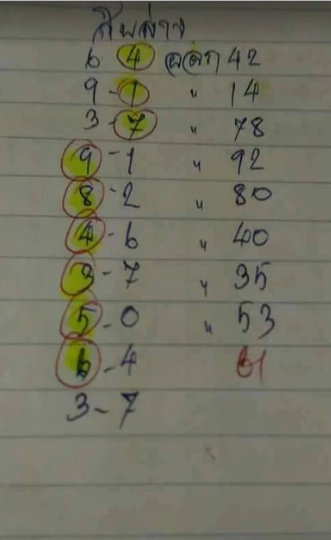 สิบล่าง
6 4 ออก 42
9-1 " 14
3-7 " 78
9-1 " 92
8-2 " 80
4-6 " 40
3-7 " 35
5-0 " 53
6-4 61
3-7